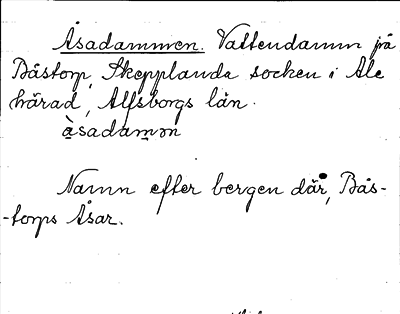 Åsadammen. Vattendamm på
Båstorp, Skepplanda socken i Ale
härad, Älfsborgs län.
àsadamən
Namn efter bergen där, Bås-
-torps Åsar.